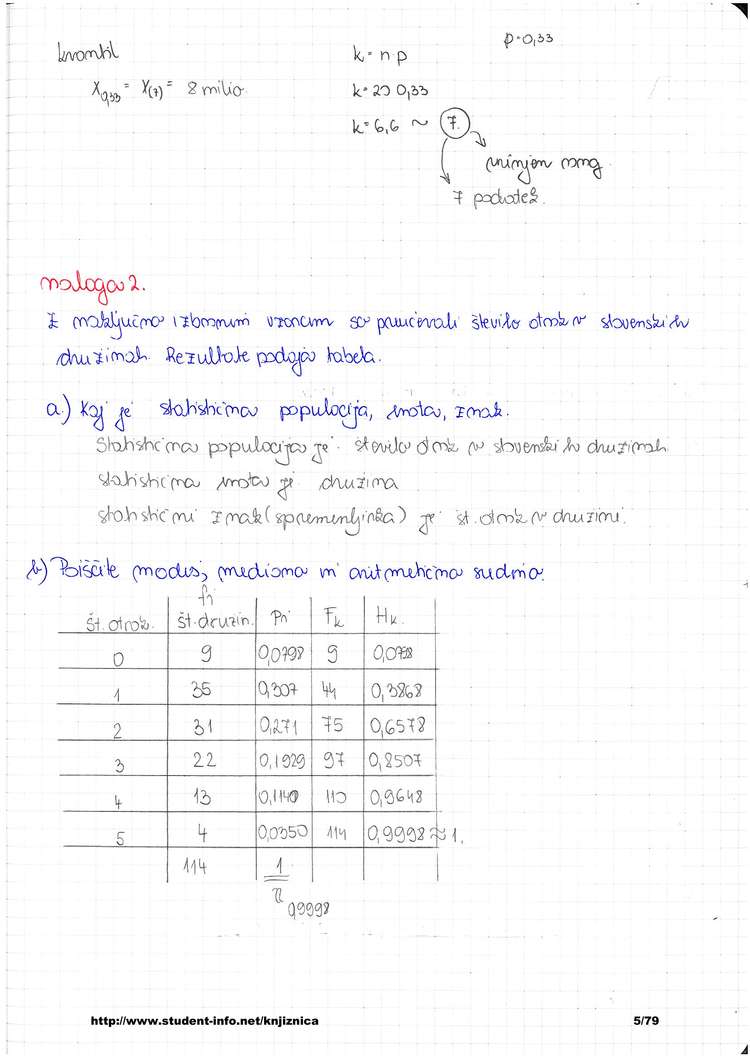 kvantil
p=0,33
k = n·p
X0,33 = X(7) = 8 milio
k = 20 0,33
k = 6,6 ~ 7.
7 podatek.
naloga 2.
Z naključno izbranim vzorcem so proučevali število otrok v slovenskih
družinah. Rezultate podaja tabela.
a.) Kaj je statistična populacija, enota, znak.
Statistična populacija je število otrok v slovenskih družinah
statistična enota je družina
statistični znak (spremenljivka) je št. otrok v družini.
b) Poiščite modus, mediana in aritmetična sredina.
fi
Št. otrok. Št. družin. Pi Fk Hk.
0 9 0,0798 9 0,0798
1 35 0,307 44 0,3868
2 31 0,271 75 0,6578
3 22 0,1929 97 0,8507
4 13 0,1140 110 0,9648
5 4 0,0350 114 0,9998 ≈ 1.
114 1
0,9998
http://www.student-info.net/knjiznica 5/79